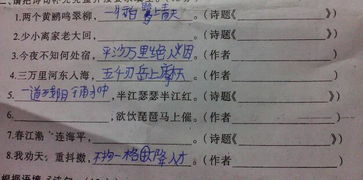 1.两个黄鹂鸣翠柳,一行白鹭上青天。(诗题《 》)
2.少小离家老大回, 。(诗题《 》)
3.今夜不知何处宿,平沙万里绝人烟。(作者 )
4.三万里河东入海,五千仞岳上摩天。(作者 )
5.一道残阳铺水中,半江瑟瑟半江红。(诗题《 》)
6. ,欲饮琵琶马上催。(作者 )
7.春江潮 连海平, 。(诗题《 》)
8.我劝天 重抖擞,不拘一格降人才。(作者 )